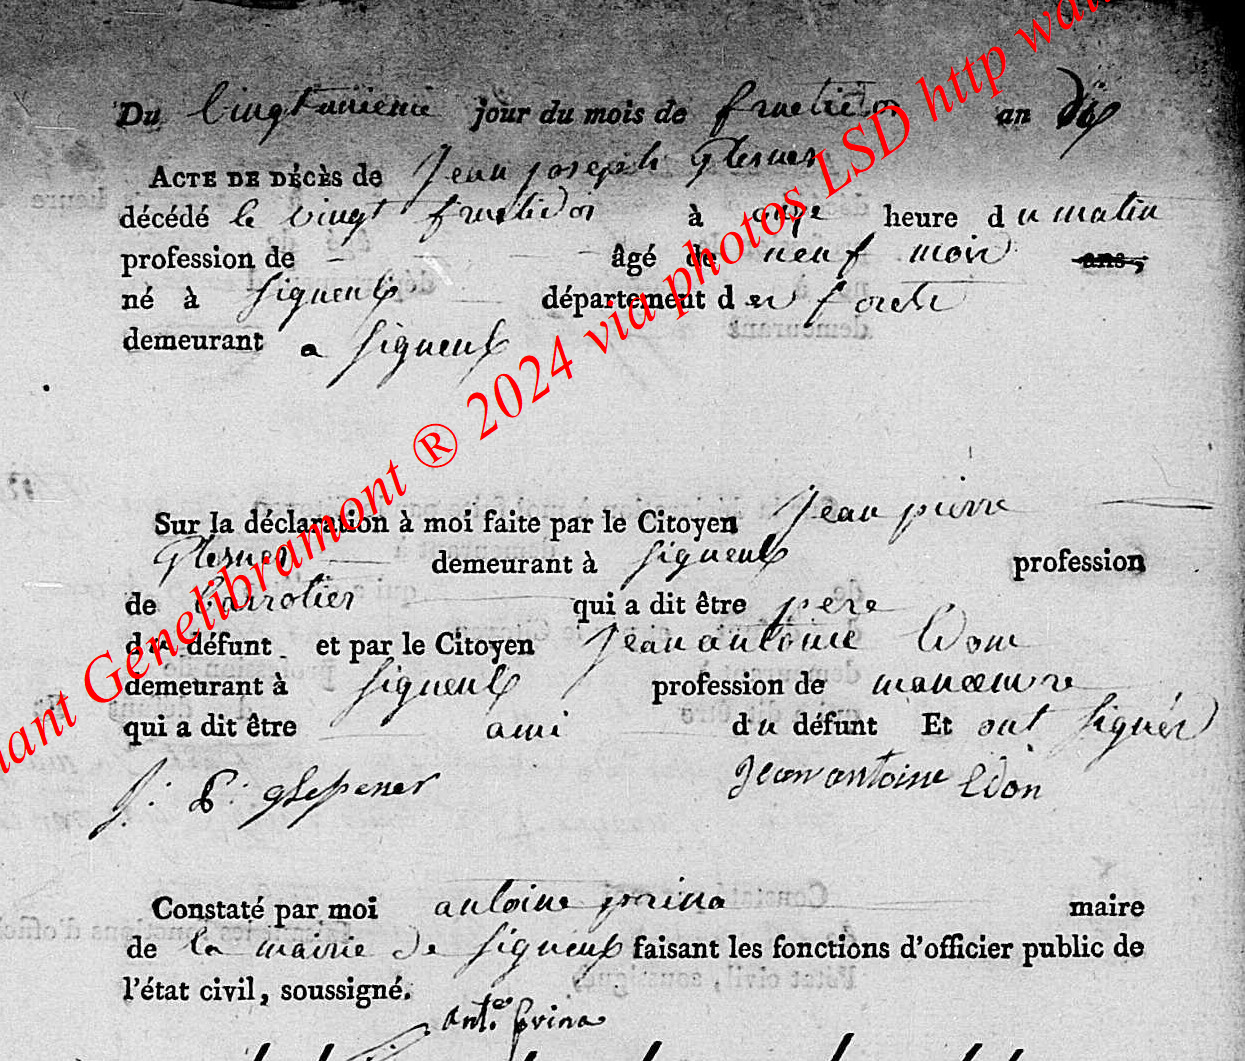 Du vingtunieme jour du mois de fructidor an dix
ACTE DE DÉCÈS de Jean joseph glesner
décédé le vingt fructidor à onze heure du matin
profession de âgé de neuf mois ans,
né à Signeulx département des forets
demeurant a Signeulx
Sur la déclaration à moi faite par le Citoyen Jean pierre
Glesner demeurant à Signeulx profession
de qui a dit être pere
du défunt et par le Citoyen Jean antoine
demeurant à Signeulx profession de manœuvre
qui a dit être ami du défunt Et ont signés
J: P: glesener Jean antoine
Constaté par moi antoine maire
de la mairie de Signeulx faisant les fonctions d'officier public de
l'état civil, soussigné.
ant.e
Genelibramont ® 2024 via photos LSD http